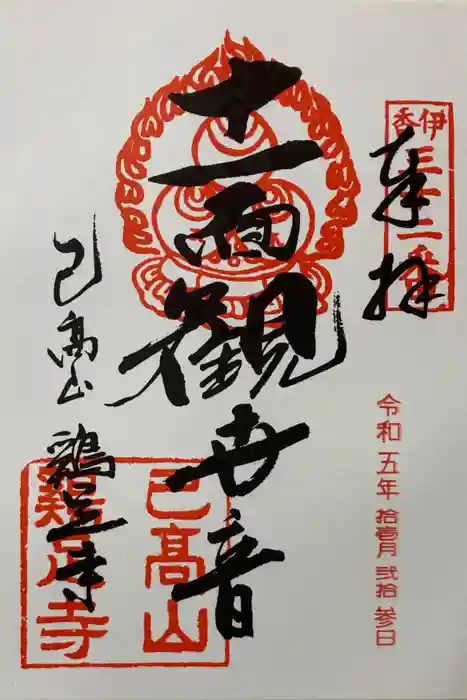 伊香三十二番
奉拝
令和五年 拾壱月 弐拾参日
十一面観世音
己高山 鶏足寺
己高山
鶏足寺